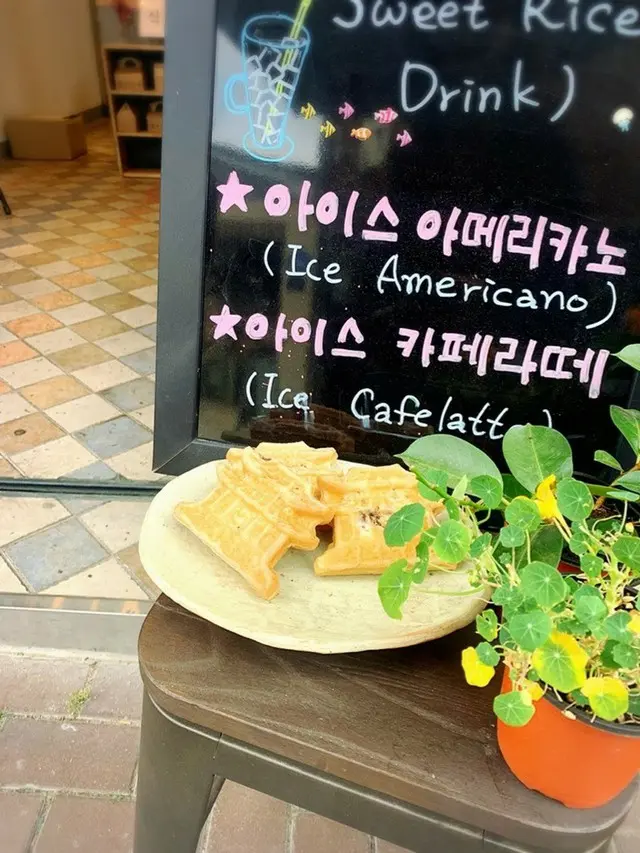 Sweet Rice
Drink)
★아이스 아메리카노
(Ice Americano)
★아이스 카페라떼
(Ice Cafelatte)